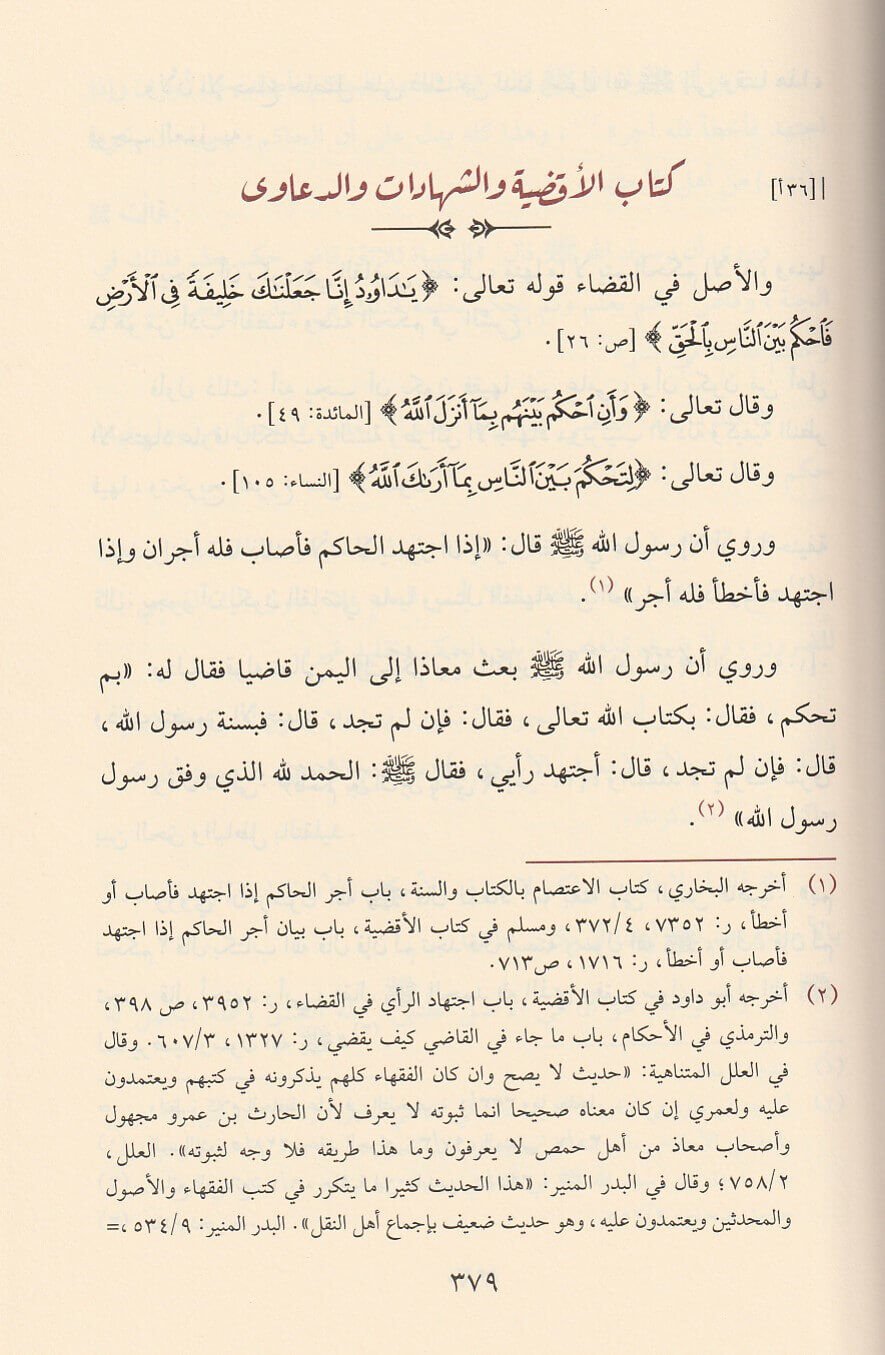 كتاب الأقضية والشهادات والدعاوى
| [٣٦أ]
والأصل في القضاء قوله تعالى: ﴿ يَٰدَاوُۥدُ إِنَّا جَعَلْنَٰكَ خَلِيفَةً فِى ٱلْأَرْضِ
فَٱحْكُم بَيْنَ ٱلنَّاسِ بِٱلْحَقِّ ﴾ [ص: ٢٦].
وقال تعالى: ﴿ وَأَنِ ٱحْكُم بَيْنَهُم بِمَآ أَنزَلَ ٱللَّهُ ﴾ [المائدة: ٤٩].
وقال تعالى: ﴿لِتَحْكُمَ بَيْنَ ٱلنَّاسِ بِمَآ أَرَىٰكَ ٱللَّهُ ﴾ [النساء: ١٠٥].
وروي أن رسول الله ﷺ قال: «إذا اجتهد الحاكم فأصاب فله أجران وإذا
اجتهد فأخطأ فله أجر» (١).
وروي أن رسول الله ﷺ بعث معاذا إلى اليمن قاضيا فقال له: «بم
تحكم، فقال: بكتاب الله تعالى، فقال: فإن لم تجد، قال: فبسنة رسول الله،
قال: فإن لم تجد، قال: أجتهد رأيي، فقال ﷺ: الحمد لله الذي وفق رسول
رسول الله» (٢).
(١) أخرجه البخاري، كتاب الاعتصام بالكتاب والسنة، باب أجر الحاكم إذا اجتهد فأصاب أو
أخطأ، ر: ٧٣٥٢، ٣٧٢/٤، ومسلم في كتاب الأقضية، باب بيان أجر الحاكم إذا اجتهد
فأصاب أو أخطأ، ر: ١٧١٦، ص٧١٣.
(٢) أخرجه أبو داود في كتاب الأقضية، باب اجتهاد الرأي في القضاء، ر: ٣٩٥٢، ص ٣٩٨،
والترمذي في الأحكام، باب ما جاء في القاضي كيف يقضي، ر: ١٣٢٧، ٦٠٧/٣. وقال
في العلل المتناهية: «حديث لا يصح وان كان الفقهاء كلهم يذكرونه في كتبهم ويعتمدون
عليه ولعمري إن كان معناه صحيحا انما ثبوته لا يعرف لأن الحارث بن عمرو مجهول
وأصحاب معاذ من أهل حمص لا يعرفون وما هذا طريقه فلا وجه لثبوته». العلل،
٧٥٨/٢؛ وقال في البدر المنير: «هذا الحديث كثيرا ما يتكرر في كتب الفقهاء والأصول
والمحدثين ويعتمدون عليه، وهو حديث ضعيف بإجماع أهل النقل». البدر المنير: ٥٣٤/٩،=
٣٧٩